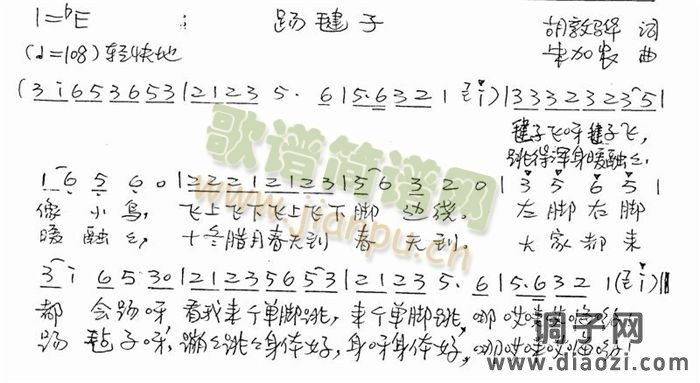 1=ᵇE : 踢毽子 胡敦骅 词
(♩=108) 轻快地 朱加农 曲
(3 i 6 5 3 6 5 3 | 2 1 2 3 5 · 6 | 5 · 6 3 2 1 i) | 3 3 3 2 3 2 3 5 |
毽子飞呀毽子飞,
跳得浑身暖融々,
1 6 5 6 0 | 2 2 2 1 2 1 2 3 | 5 6 3 2 0 | 3 5 6 5 |
像 小 鸟, 飞上飞下飞上飞下脚 边绕。 左脚右脚
暖 融々, 十冬腊月春天到 春 天到。 大家都来
3 i 6 5 3 0 | 2 1 2 3 5 6 5 3 | 2 1 2 3 5 · 6 | 5 · 6 3 2 1 ( i) ||
都 会踢呀 看我来个单脚跳, 来个单脚跳, 哪哎哇
踢 毽子呀, 蹦々跳々身体好, 身呀身体好, 哪哎哇
歌谱简谱网
www.jianpu.cn
调子网
www.diaozi.com